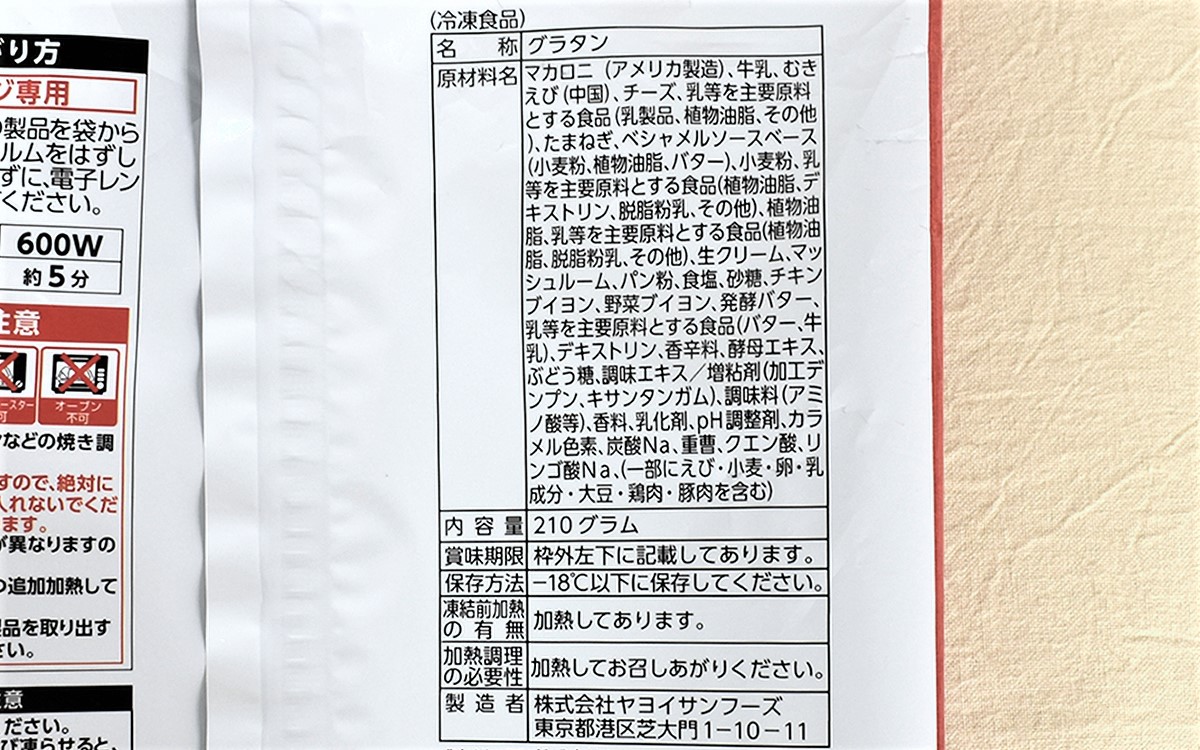 り方
ジ専用
製品を袋から
ルムをはずし
ずに、電子レン
ください。
600W
約5分
注意
オーブン
不可
などの焼き調
すので、絶対に
入れないでくだ
ます。
が異なりますの
追加加熱して
品を取り出す
さい。
意
ださい。
び凍らせると、
(冷凍食品)
名 称 グラタン
原材料名 マカロニ (アメリカ製造)、牛乳、むき
えび(中国)、チーズ、乳等を主要原料
とする食品(乳製品、植物油脂、その他
)、たまねぎ、ベシャメルソースベース
(小麦粉、植物油脂、バター)、小麦粉、乳
等を主要原料とする食品(植物油脂、デ
キストリン、脱脂粉乳、その他)、植物油
脂、乳等を主要原料とする食品(植物油
脂、脱脂粉乳、その他)、生クリーム、マッ
シュルーム、パン粉、食塩、砂糖、チキン
ブイヨン、野菜ブイヨン、発酵バター、
乳等を主要原料とする食品(バター、牛
乳)、デキストリン、香辛料、酵母エキス、
ぶどう糖、調味エキス/増粘剤(加工デ
ンプン、キサンタンガム)、調味料(アミ
ノ酸等)、香料、乳化剤、pH調整剤、カラ
メル色素、炭酸Na、重曹、クエン酸、リ
ンゴ酸Na、(一部にえび・小麦・卵・乳
成分・大豆・鶏肉・豚肉を含む)
内容量 210グラム
賞味期限 枠外左下に記載してあります。
保存方法 −18℃以下に保存してください。
凍結前加熱の有無 加熱してあります。
加熱調理の必要性 加熱してお召しあがりください。
製造者 株式会社ヤヨイサンフーズ
東京都港区芝大門1−10−11